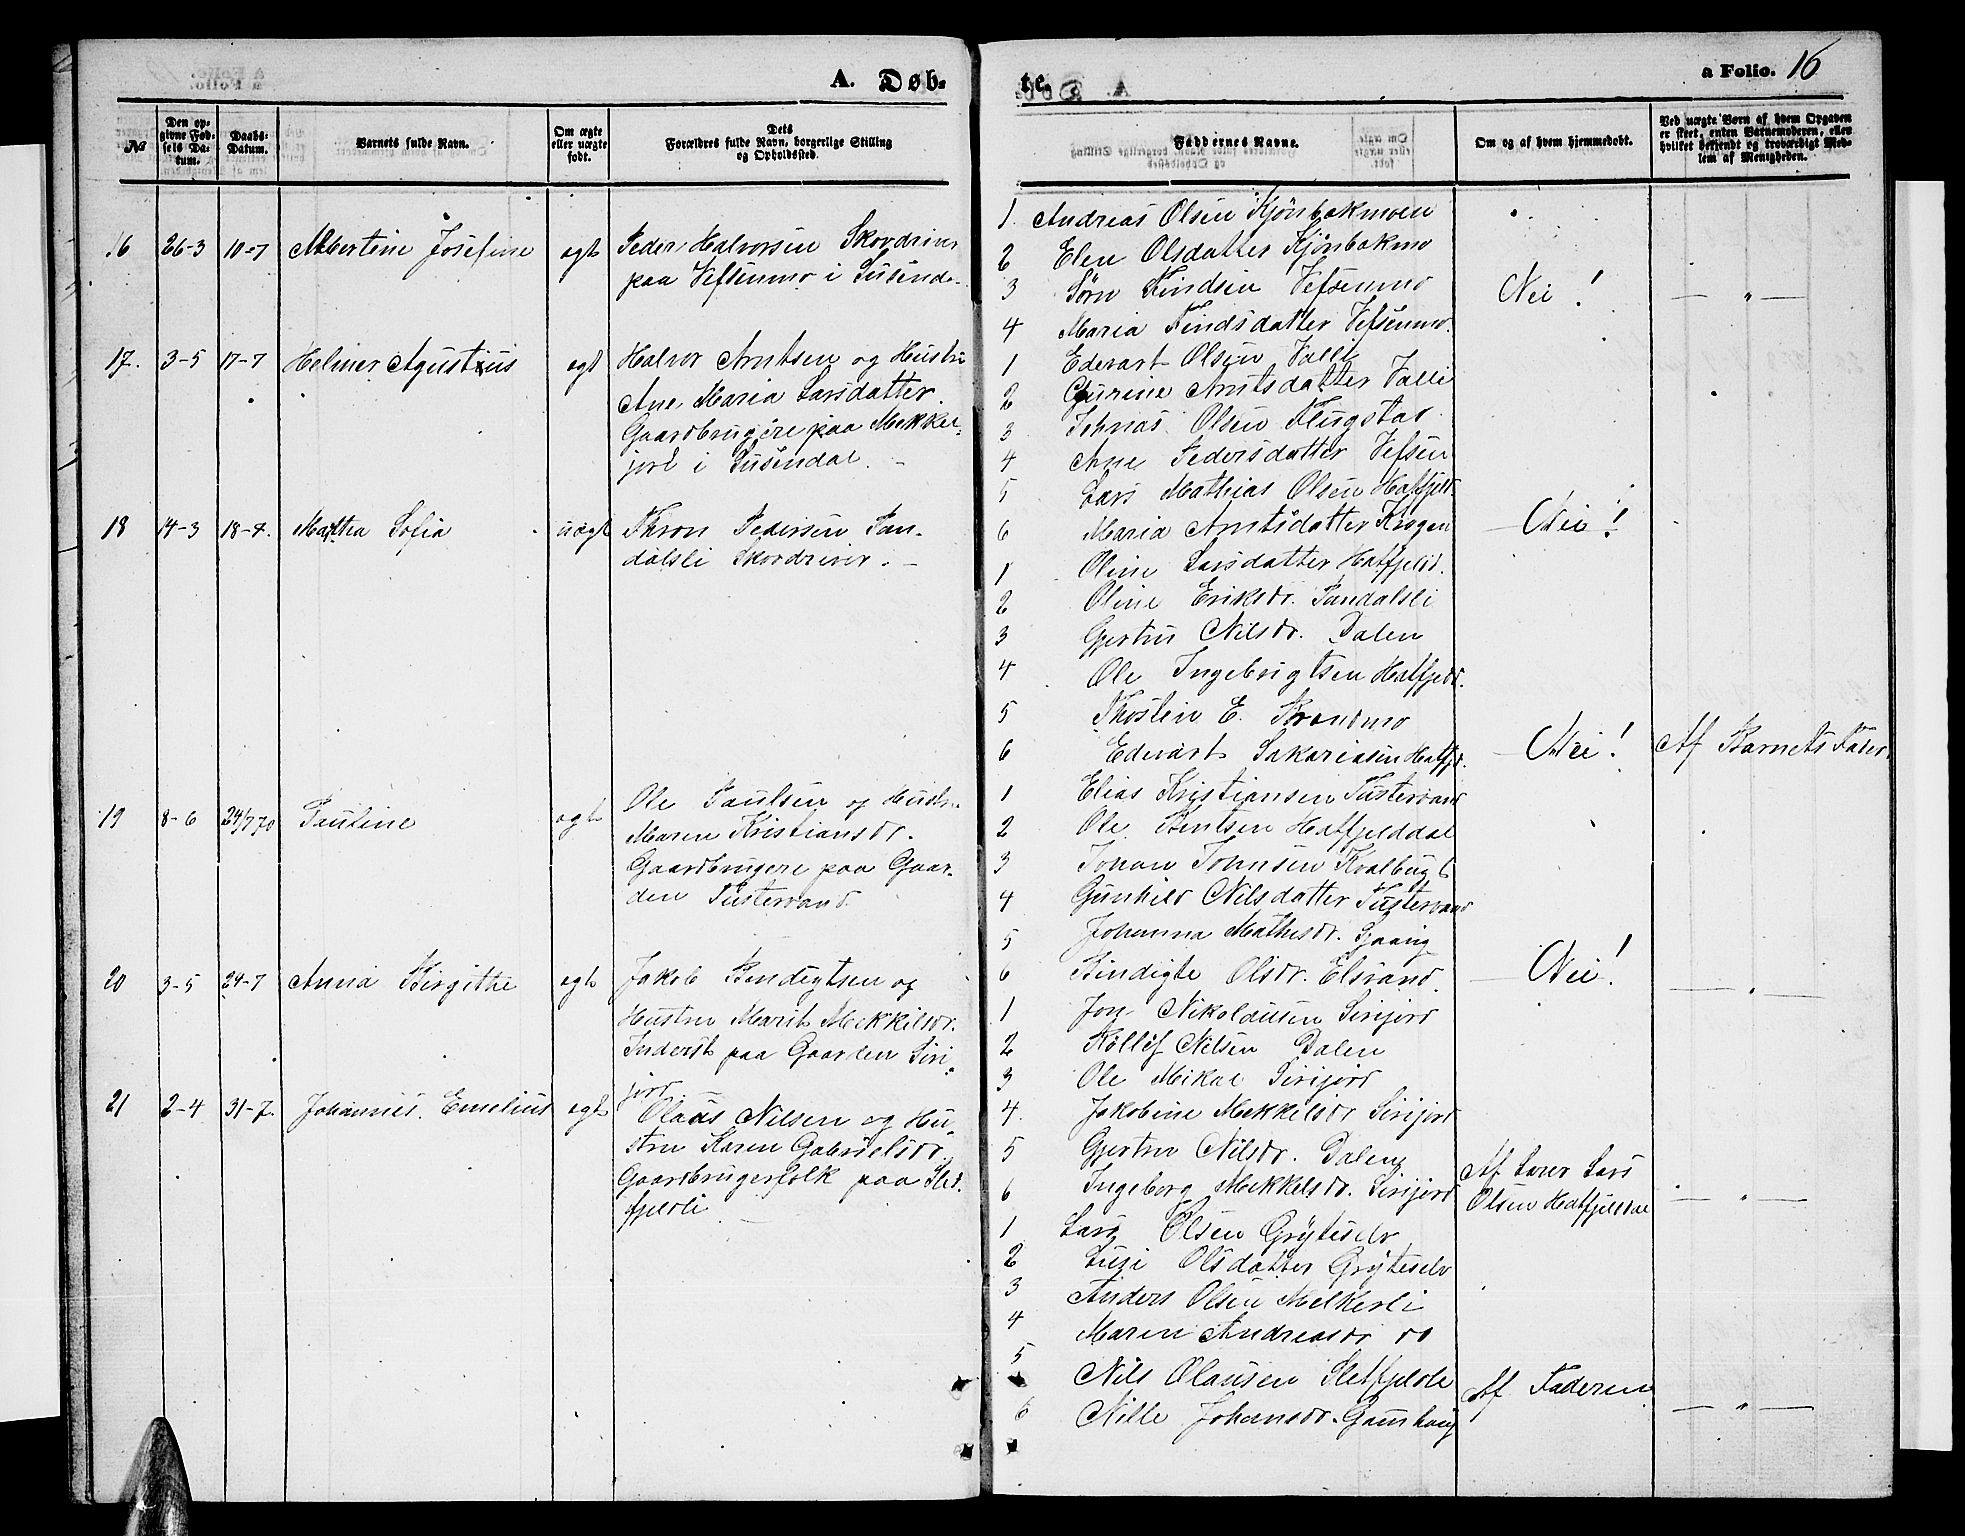 A. Døb-
№
Den op-
givne Fød-
sels Da-
tum.
Daabs-
Datum.
Barnets fulde Navn.
Om ægte
eller uægte
født.
Dets
Forældres fulde Navn, borgerlige Stilling
og Opholdssted.
16 26-3 10-7 Albertine Josefine ægt Peder Halvorsen Skovdriver
paa Vefsenmo i Susenda-
17. 3-5 17-7 Helmer Agustius ægt Halvor Arntsen og Hustru
Ane Maria Larsdatter.
Gaardbrugere paa Mikkel-
jord i Susendal. -
18 14-3 18-7. Martha Sofia uægt Thron Pedersen Pan-
dalsli Skovdriver. -
19 8-6 24/7 70 Pauline ægt Ole Paulsen og Hustru
Maren Kristiansdr.
Gaardbrugere paa Gaar-
den Tustervand.
20 3-5 24-7 Anna Birgithe ægt Jakob Bendigtsen og
Hustru Marit Mekkilsdr.
Inderst paa Gaarden Siri-
jord
21 2-4 31-7. Johannes Emelius ægt Olaus Nilsen og Hu-
stru Karen Gabrielsdr.
Gaardbrugerfolk paa Slet-
fjeldli
te.
a Folio. 16
Faddernes Navne.
Om og af hvem hjemmedøbt.
Ved uægte Børn af hvem Opgaven
er skeet, enten Barnemoderen, eller
hvilket bekjendt og troværdigt Med-
lem af Menigheden.
1 Andreas Olsen Kjönbakmoen
2 Elen Olsdatter Kjönbakmo
3 Sörn Findsen Vefsenmo Nei! - " -
4 Maria Findsdatter Vefsenmo.
1 Edevart Olsen Valli
2 Gurine Arntsdatter Valli
3 Johnas Olsen Flugstad
4 Ane Pedersdatter Vefsen
5 Lars Mathias Olsen Hatfjeld
6 Maria Arntsdatter Krogen - Nei!
1 Oline Larsdatter Hatfjeld.
2 Oline Eriksdr. Pandalsli
3 Gjertru Nilsdr. Dalen
4 Ole Ingebrigtsen Hatfjeld.
5 Thostin E. Strandmo
6 Edevart Sakariasen Hatfjd. - Nei! Af Barnets Fader
1 Elias Kristiansen Tustervand
2 Ole Bentsen Hatfjelddal
3 Johan Johnsen Kvalbugt
4 Gunhild Nilsdatter Tustervand
5 Johanna Mathisdr.
6 Bendigte Olsdr. Elsvand. - Nei! - " -
1 Jon Nikolaisen Sirijord
2 Nilsen Dalen
3 Ole Mikal Sirijord
4. Jakobine Mekkilsdr Sirijord
5 Gjertru Nilsdr. Dalen
6 Ingeborg Mekkelsdr. Sirijord
Af Lærer Lars
Olsen Hatfjelddal - " -
1 Lars Olsen Gryteselv
2 Olsdatter Gryteselv
3 Anders Olsen Melkerli
4 Maren Andreasdr do
5 Nils Olausen Sletfjeldli
Af Faderen - " -
6 Nille Johansdr.